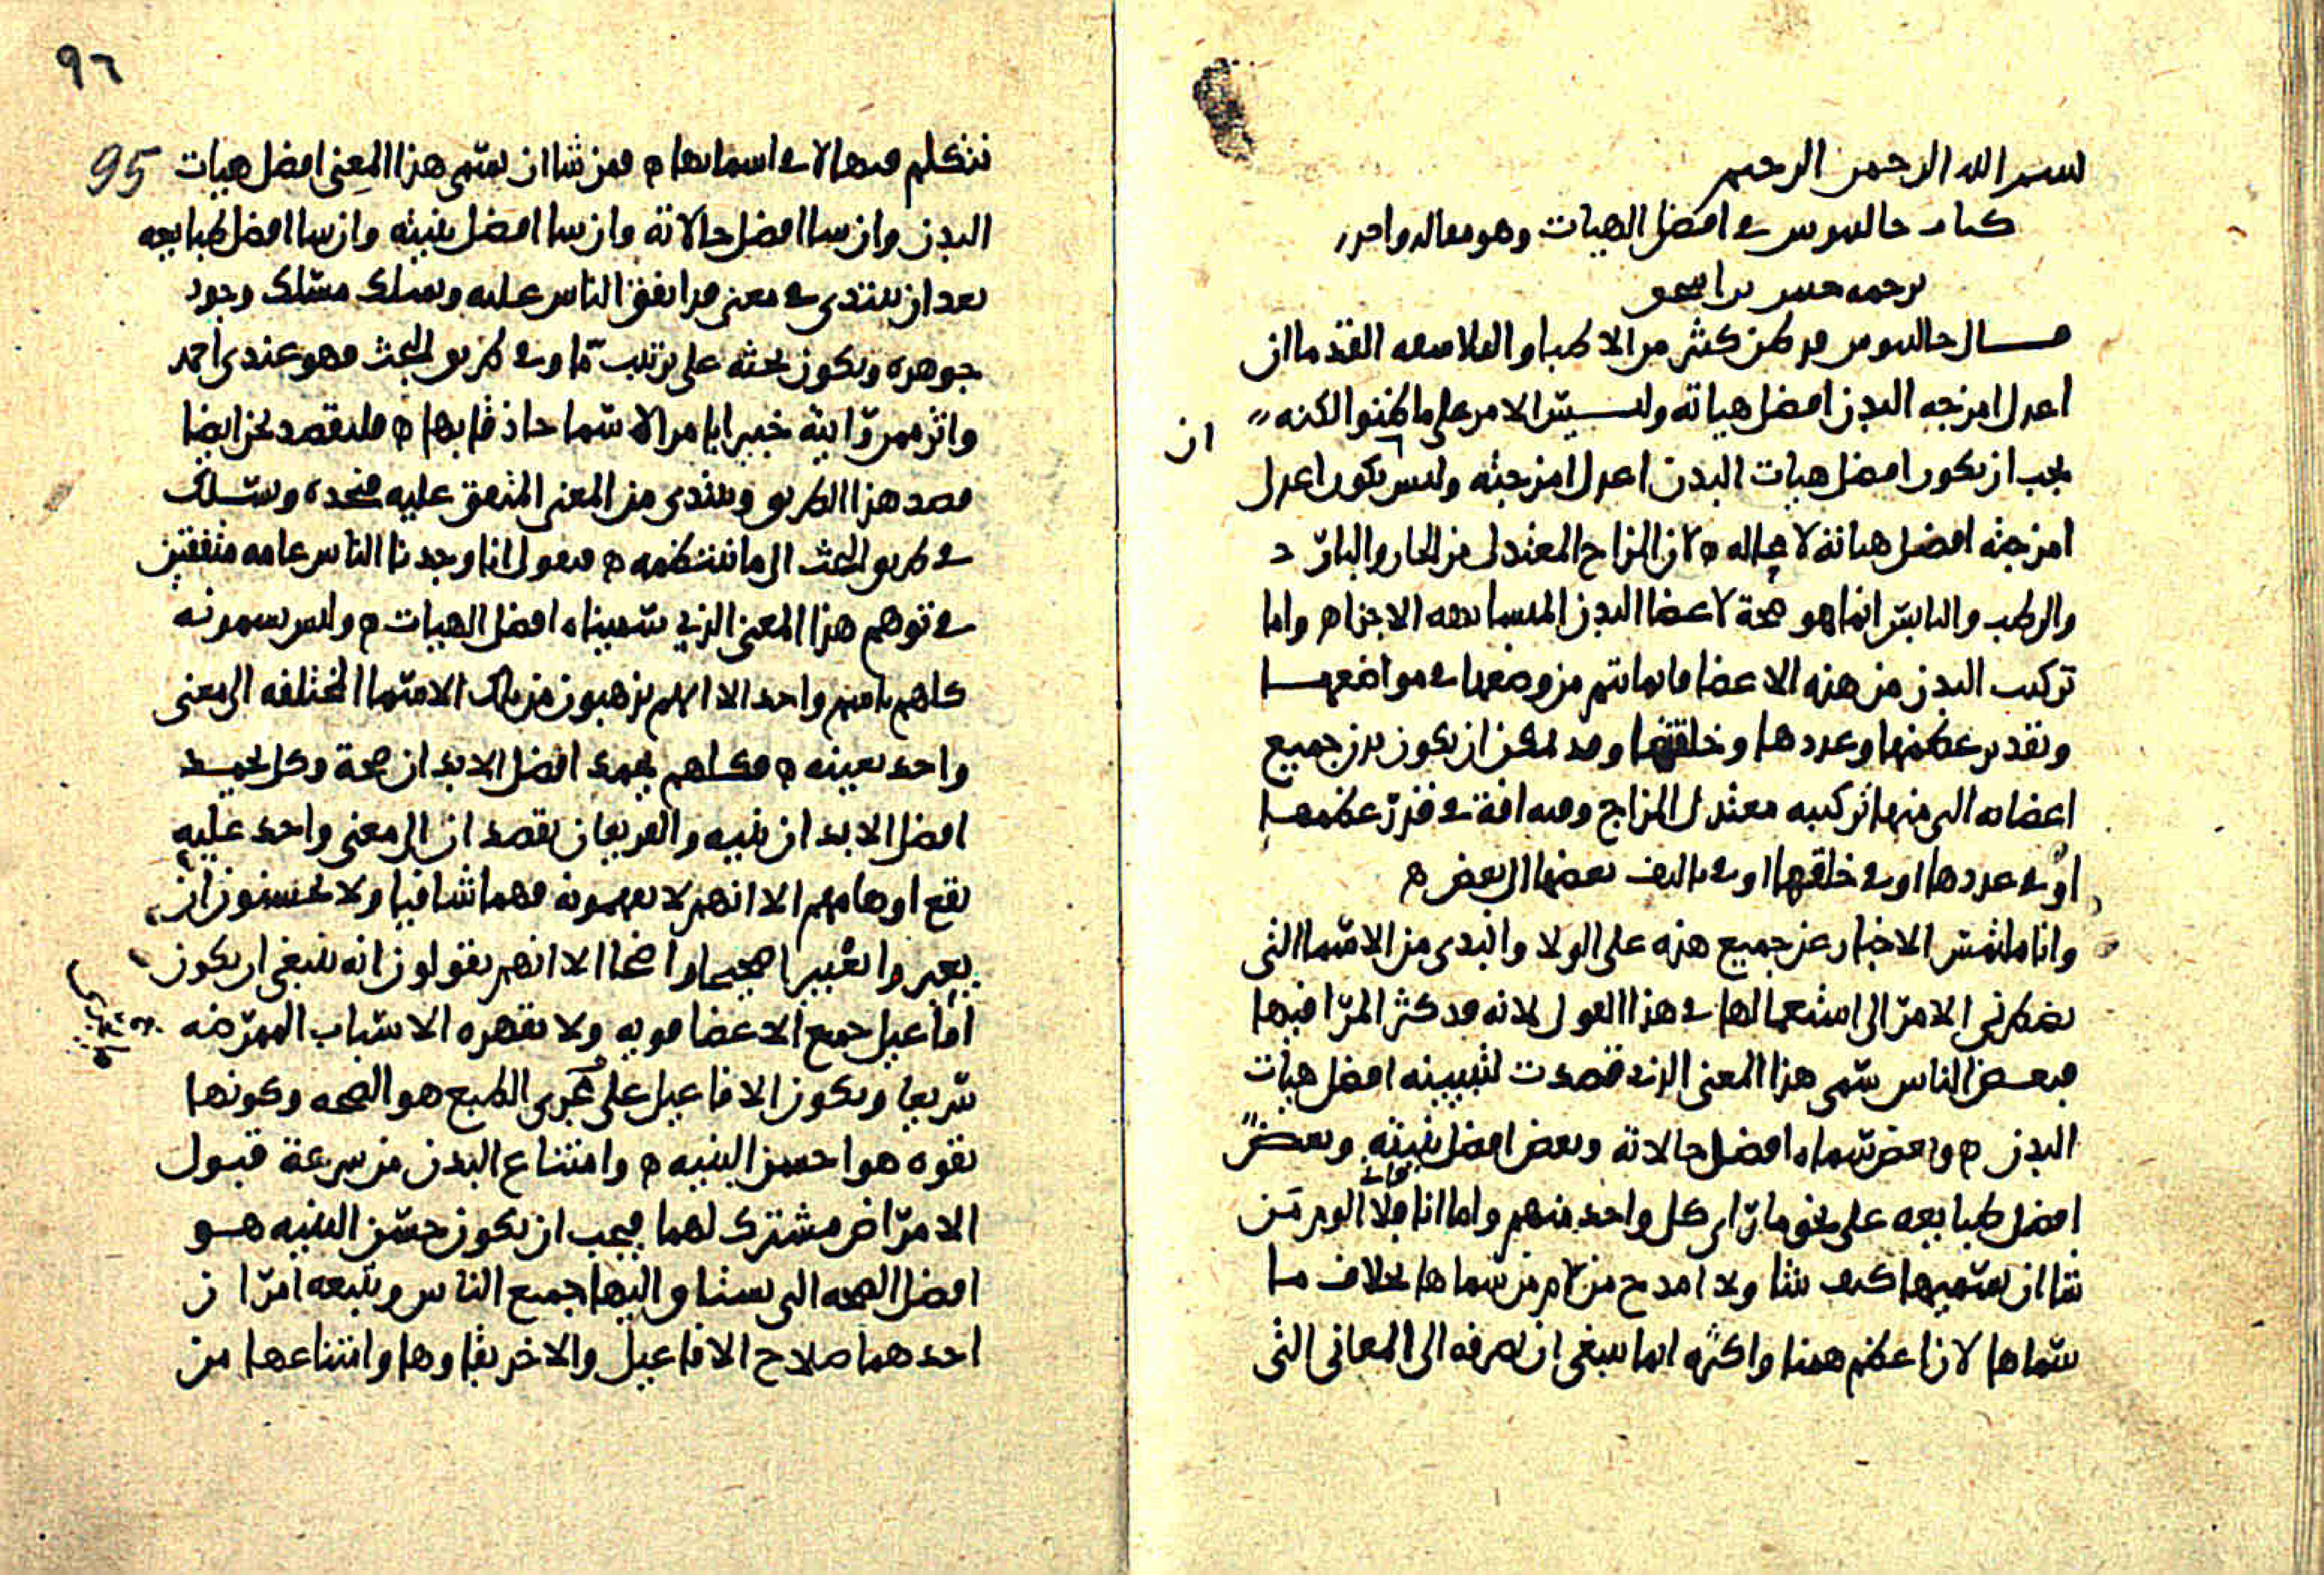 بسم الله الرحمن الرحيم
كتاب جالينوس في افضل الهيات وهو مقاله واحده
ترجمه حنين بن اسحق
قال جالينوس قد ظن كثير من الاطبا والفلاسفه القدما ان
اعدل امزجه البدن افضل هياته وليس الامر على ما ظنوا لكنه
ان
يجب ان يكون افضل هيات البدن اعدل امزجته وليس يكون اعدل
امزجته افضل هياته لا محاله ه لان المزاج المعتدل من الحار والبارد
والرطب واليابس انما هو صحة لاعضا البدن المتشابهه الاجزا ه واما
تركيب البدن من هذه الاعضا فانما تتم من وضعها في مواضعها
وتقدير عظمها وعددها وخلقتها وقد يمكن ان يكون بدن جميع
اعضاه التي منها تركيبه معتدل المزاج وفيه افة في قدر عظمها
او في عددها او في خلقتها او في تاليف بعضها الى بعض ه
وانا ملتمس الاخبار عن جميع هذه على الولا وابتدى من الاسما التي
يضطرني الامر الى استعمالها في هذا القول لانه قد كثر المرا فيها
فبعض الناس سمى هذا المعنى الذي قصدت لتبيينه افضل هيات
البدن ه وبعض سماه افضل حالاته وبعض افضل بنيته وبعض
افضل طبايعه على نحو ما راى كل واحد منهم واما انا فلا الوم من
شا ان يسميها كيف شا ولا امدح من لام من سماها بخلاف ما
سماها لان اعظم همنا واكثره انما ينبغي ان نصرفه الى المعاني التي
٩٦
95
نتكلم فيها لا في اسمايها ه فمن شا ان يسمى هذا المعنى افضل هيات
البدن وان شا افضل حالاته وان شا افضل بنيته وان شا افضل طبايعه
بعد ان يبتدى في معنى قد اتفق الناس عليه ويسلك مسلك وجود
جوهره ويكون بحثه على ترتيب ما وفي طريق البحث فهو عندي احمد
واثر ممن رايته خبيرا بامر الاسما حاذقا بها ه فلنقصد نحن ايضا
قصد هذا الطريق ونبتدى من المعنى المتفق عليه فنحده ونسلك
في طريق البحث الى ما ننتظمه ه فنقول انا وجدنا الناس عامه متفقين
في توهم هذا المعنى الذي سميناه افضل الهيات ه وليس يسمونه
كلهم باسم واحد الا انهم يذهبون من تلك الاسما المختلفه الى معنى
واحد بعينه ه فكلهم يحمد افضل الابدان صحة وكل يحمد
افضل الابدان بنيه والفريقان يقصدان الى معنى واحد عليه
يقع اوهامهم الا انهم لا يفهمونه فهما شافيا ولا يحسنون ان
يعبروا تعبيرا صحيحا واضحا الا انهم يقولون انه ينبغي ان يكون
افاعيل جميع الاعضا قويه ولا تقهره الاسباب الممرضه
سريعا ويكون الافاعيل على مجرى الطبع هو الصحه وكونها
بقوه هو احسن البنيه ه وامتناع البدن من سرعة قبول
الامراض مشترك لهما فيجب ان يكون حسن البنيه هو
افضل الصحه التي يشتاق اليها جميع الناس ويتبعه امران
احدهما صلاح الافاعيل والاخر بقاوها وامتناعها من